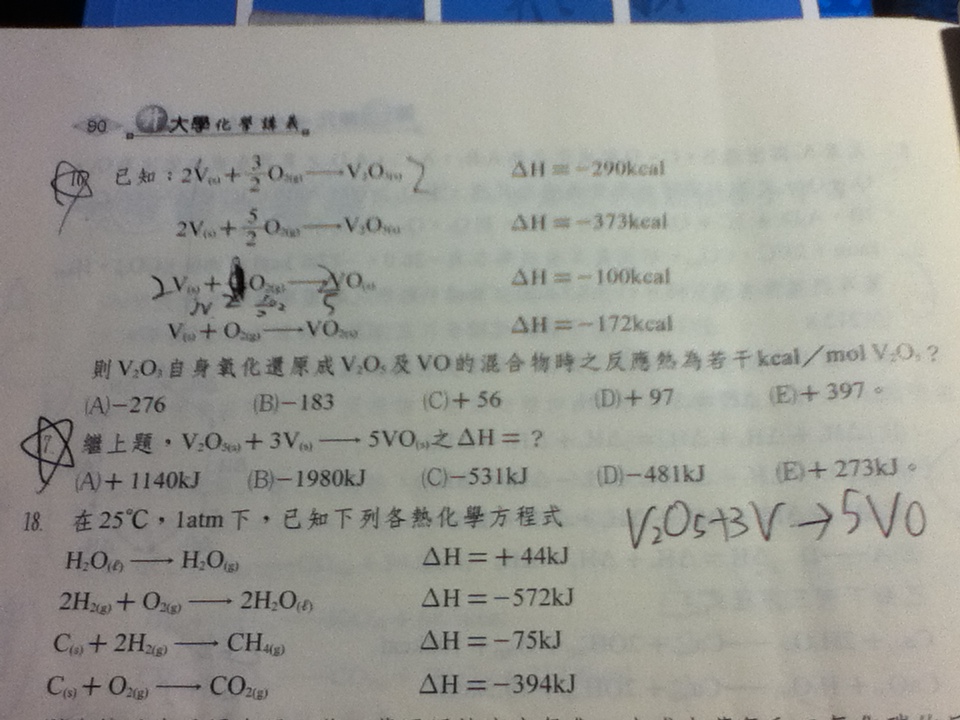 90 大學化學講義
16. 已知：2V(s) + 3/2 O2(g) ⟶ V2O3(s) ΔH = −290kcal
2V(s) + 5/2 O2(g) ⟶ V2O5(s) ΔH = −373kcal
2V(s) + O2(g) ⟶ 2VO(s) ΔH = −100kcal
V(s) + O2(g) ⟶ VO2(s) ΔH = −172kcal
則 V2O3 自身氧化還原成 V2O5 及 VO 的混合物時之反應熱為若干 kcal／mol V2O3？
(A)−276 (B)−183 (C)+56 (D)+97 (E)+397。
17. 繼上題，V2O5(s) + 3V(s) ⟶ 5VO(s) 之 ΔH = ？
(A)+1140kJ (B)−1980kJ (C)−531kJ (D)−481kJ (E)+273kJ。
V2O5+3V→5VO
18. 在25℃，1atm下，已知下列各熱化學方程式
H2O(ℓ) ⟶ H2O(g) ΔH = +44kJ
2H2(g) + O2(g) ⟶ 2H2O(ℓ) ΔH = −572kJ
C(s) + 2H2(g) ⟶ CH4(g) ΔH = −75kJ
C(s) + O2(g) ⟶ CO2(g) ΔH = −394kJ